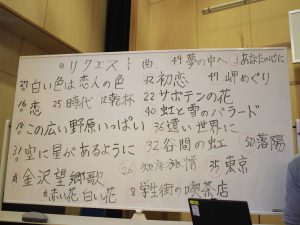 リクエスト曲 49 夢の中へ あなたの心に
白い色は恋人の色 42 初恋 49 岬めぐり
恋 25 時代 12 乾杯 22 サボテンの花
40 虹と雪のバラード
この広い野原いっぱい 36 遠い世界に
空に星があるように 32 谷間の虹 50 落陽
金沢望郷歌 26 知床旅情 35 東京
赤い花白い花 8 学生街の喫茶店